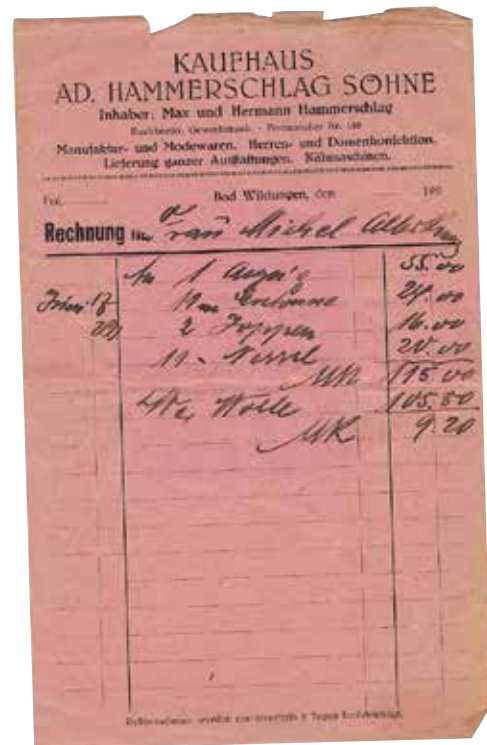 KAUFHAUS
AD. HAMMERSCHLAG SÖHNE
Inhaber: Max und Hermann Hammerschlag
Manufaktur- und Modewaren. Herren- und Damenkonfektion.
Lieferung ganzer Ausstattungen. Nähmaschinen.
Fol. Bad Wildungen, den 192
Rechnung für Frau Michel
An 1 Anzug 55.00
Juni 17 11 m 24.00
2 Joppen 16.00
11 - Nessel 20.00
MK 115.00
Wolle 105.80
MK 9.20